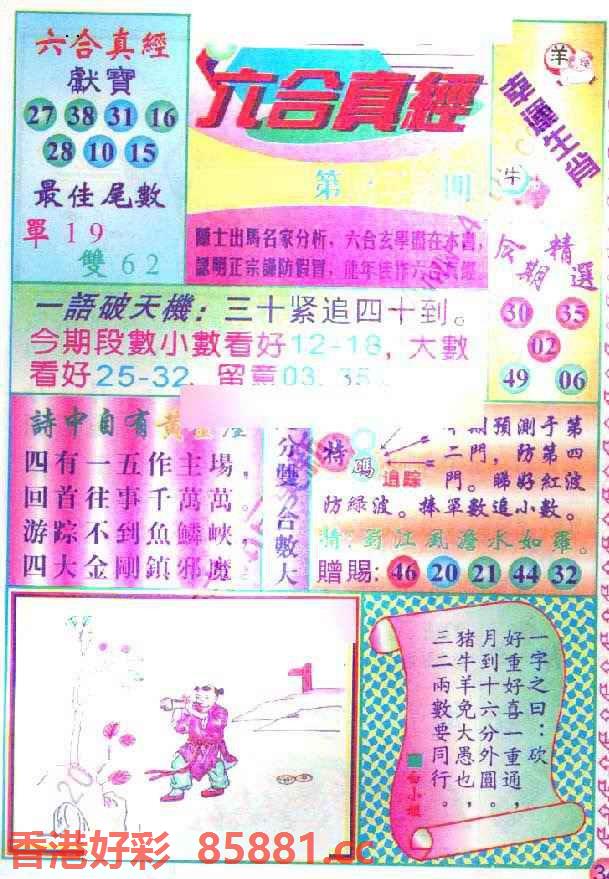 六合真經
獻寶
27 38 31 16
28 10 15
最佳尾數
單19
雙62
六合真經
第 期
隱士出馬名家分析，六合玄學盡在本書，
認明正宗謹防假冒，龍年佳作六合真經
羊
幸運生肖
牛
今期精選
30 35
02
49 06
一語破天機：三十紧追四十到。
今期段數小數看好12-18，大數
看好25-32，留意03.35
詩中自有黃
四有一五作主場，
回首往事千萬萬。
游踪不到魚鱗峽，
四大金剛鎮邪魔
分雙合數大
特碼
追踪
期預測于第
二門，防第四
門。睇好紅波
防綠波。捧單數追小數。
特：蜀江風澹水如羅。
贈賜：46 20 21 44 32
一字之曰：砍
好重好喜一重通，
月到十六分外圓，
猪牛羊免大愚也，
三二兩數要同行。
白小姐
香港好彩 85881.cc
3